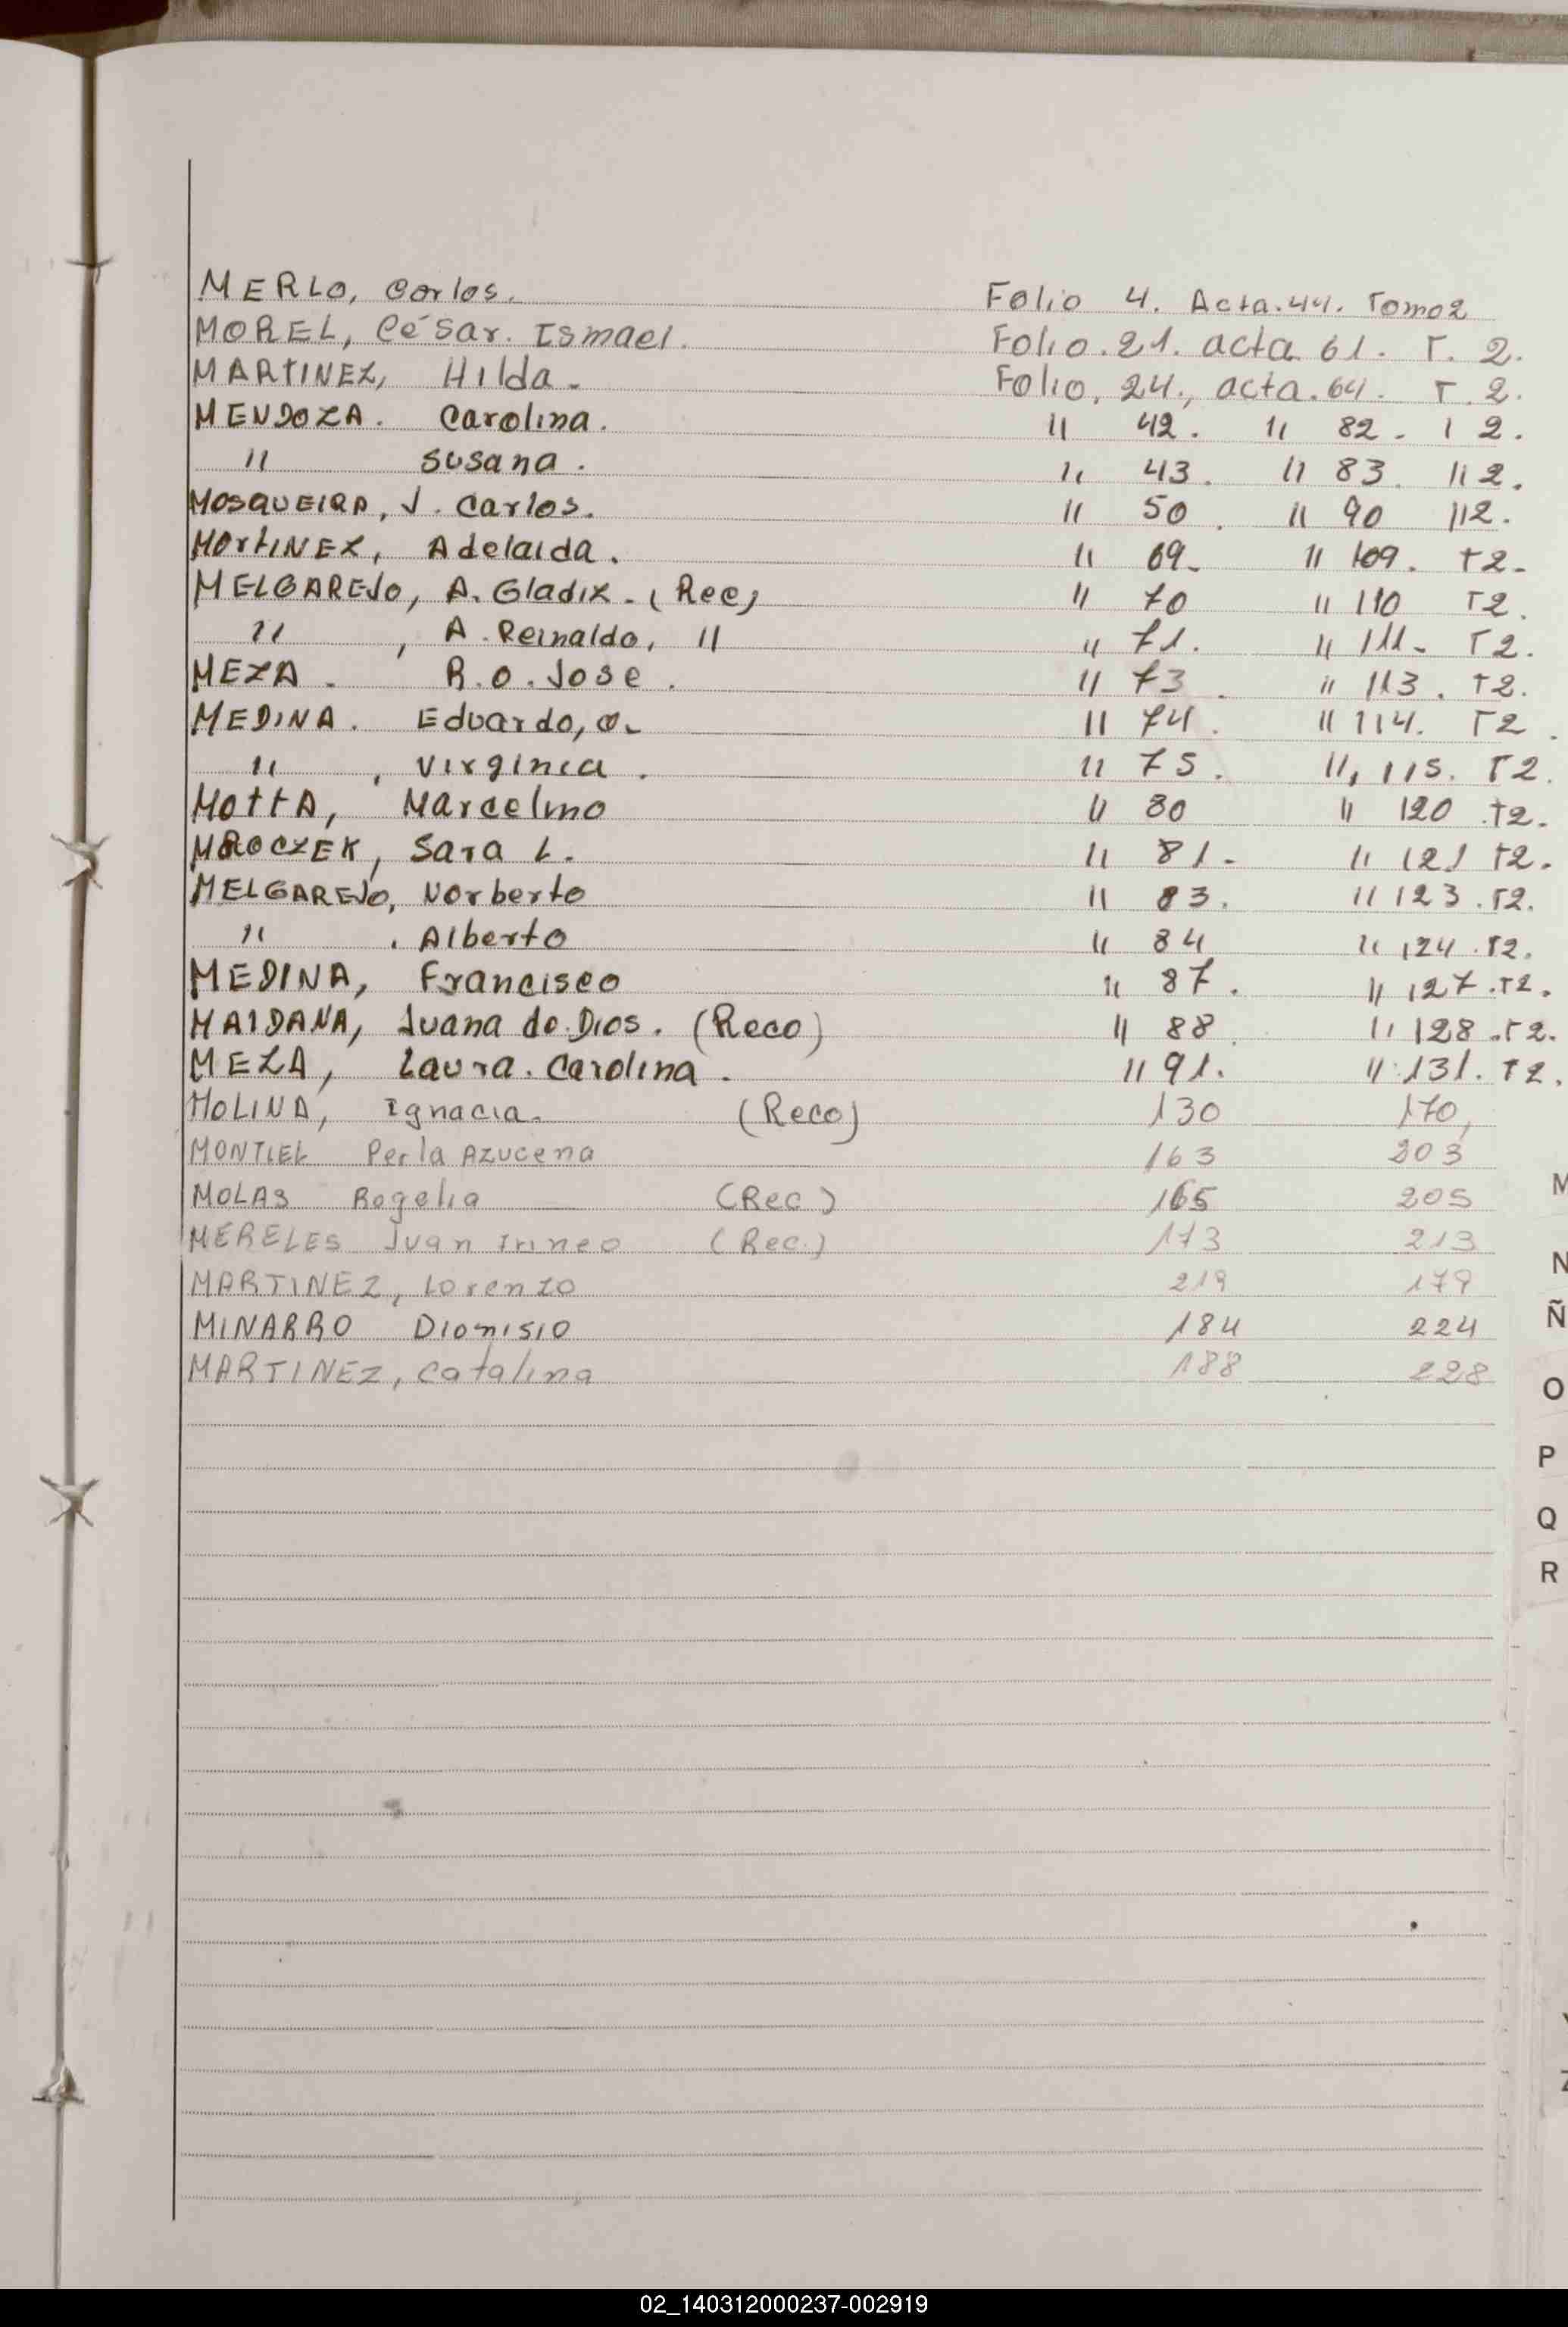 MERLO, Carlos. Folio 4. Acta.44. Tomo 2
MOREL, César. Ismael. Folio.21. acta 61. T. 2.
MARTINEZ, Hilda. Folio, 24., acta.64. T. 2.
MENDOZA. Carolina. " 42. " 82. 1 2.
" Susana. " 43. " 83. 11 2.
MOSQUEIRA, J. Carlos. " 50. " 90 112.
MOrtINEZ, Adelaida. " 69. " 109. T2.
MELGAREJO, A. Gladix. (Rec) " 70 " 110 T2.
" , A. Reinaldo, " " 71. " 111. T2.
MEZA. R.O. Jose. " 73. " 113. T2.
MEDINA. Eduardo, O. " 74. " 114. T2.
" , Virginia. " 75. ", 115. T2.
MottA, Marcelino " 80 " 120 .T2.
MROCZEK, Sara L. " 81. " 121 T2.
MELGAREJO, Norberto " 83. " 123.T2.
" . Alberto " 84 " 124.T2.
MEDINA, Francisco " 87. " 127.T2.
MAIDANA, Juana de Dios. (Reco) " 88. " 128.T2.
MEZA, Laura. Carolina. " 91. " 131. T2.
MOLINA, Ignacia. (Reco) 130 170,
MONTIEL Perla Azucena 163 203
MOLAS Rogelia (Rec) 165 205
MERELES Juan Irineo (Rec.) 173 213
MARTINEZ, Lorenzo 219 179
MINARRO Dionisio 184 224
MARTINEZ, Catalina 188 228
M
N
Ñ
O
P
Q
R
02_140312000237-002919